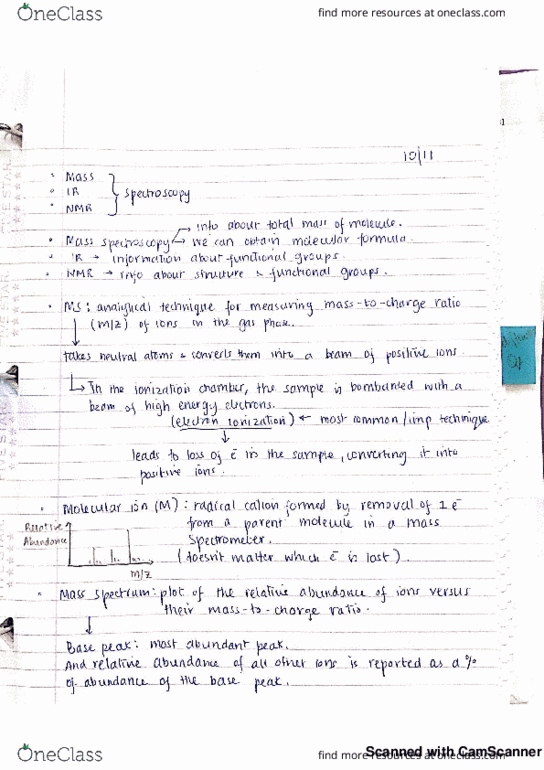 OneClass
find more resources at oneclass.com
10/11
• Mass
• IR
• NMR
} spectroscopy
→ info about total mass of molecule.
• Mass spectroscopy → we can obtain molecular formula.
• IR → information about functional groups.
• NMR → info about structure & functional groups.
• MS: analytical technique for measuring mass-to-charge ratio
(m/z) of ions in the gas phase.
takes neutral atoms & converts them into a beam of positive ions.
→ In the ionization chamber, the sample is bombarded with a
beam of high energy electrons.
(electron ionization) ← most common/imp technique
leads to loss of e̅ in the sample, converting it into
positive ions.
• Molecular ion (M): radical cation formed by removal of 1 e̅
from a parent molecule in a mass
spectrometer.
(doesn't matter which e̅ is lost).
Relative
Abundance
M/Z
• Mass spectrum: plot of the relative abundance of ions versus
their mass-to-charge ratio.
Base peak: most abundant peak.
And relative abundance of all other ions is reported as a %
of abundance of the base peak.
OneClass
find more resources at oneclass.com
Scanned with CamScanner